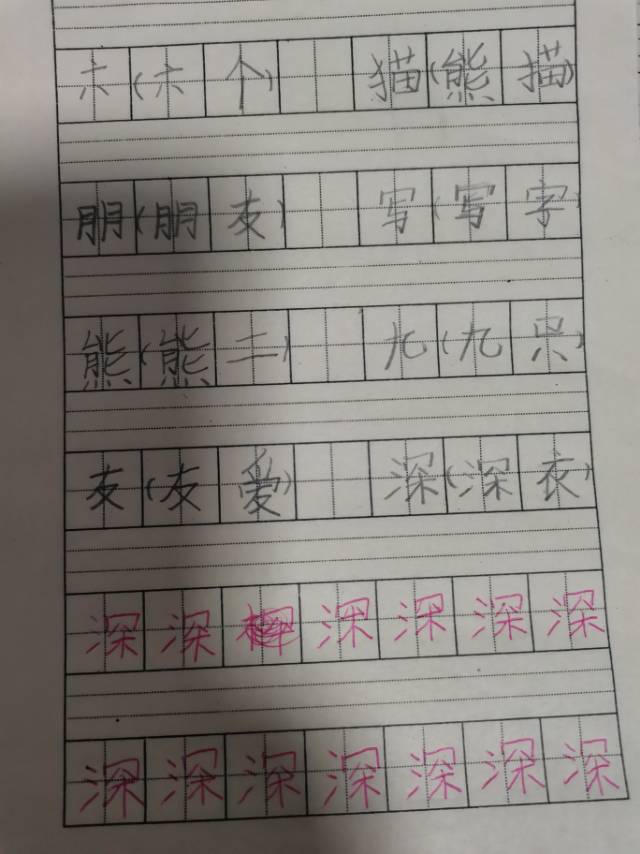 未(未个) 猫(熊描)
朋(朋友) 写(写字)
熊(熊二) 九(九只)
友(友爱) 深(深衣)
深深深深深深
深深深深深深深